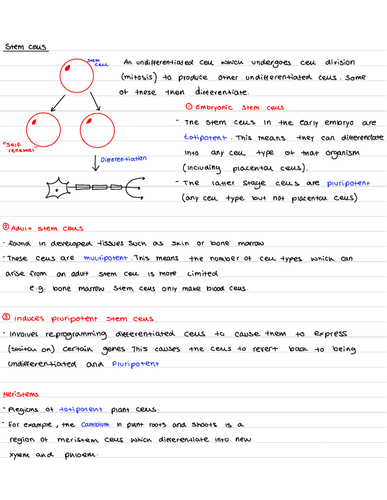 Stem cells
Stem cell
An undifferentiated cell which undergoes cell division
(mitosis) to produce other undifferentiated cells. Some
of these then differentiate.
① Embryonic stem cells
- The stem cells in the early embryo are
totipotent. This means they can differentiate
into any cell type of that organism
(including placental cells).
- The latter stage cells are pluripotent
(any cell type but not placental cells)
"Self renewal"
Differentiation
② Adult stem cells
- found in developed tissues such as skin or bone marrow
- These cells are multipotent. This means the number of cell types which can
arise from an adult stem cell is more limited
e.g. bone marrow stem cells only make blood cells.
③ Induces pluripotent stem cells
- Involves reprogramming differentiated cells to cause them to express
(switch on) certain genes. This causes the cells to revert back to being
undifferentiated and pluripotent
Meristems
- Regions of totipotent plant cells.
- for example, the cambium in plant roots and shoots is a
region of meristem cells which differentiate into new
xylem and phloem.